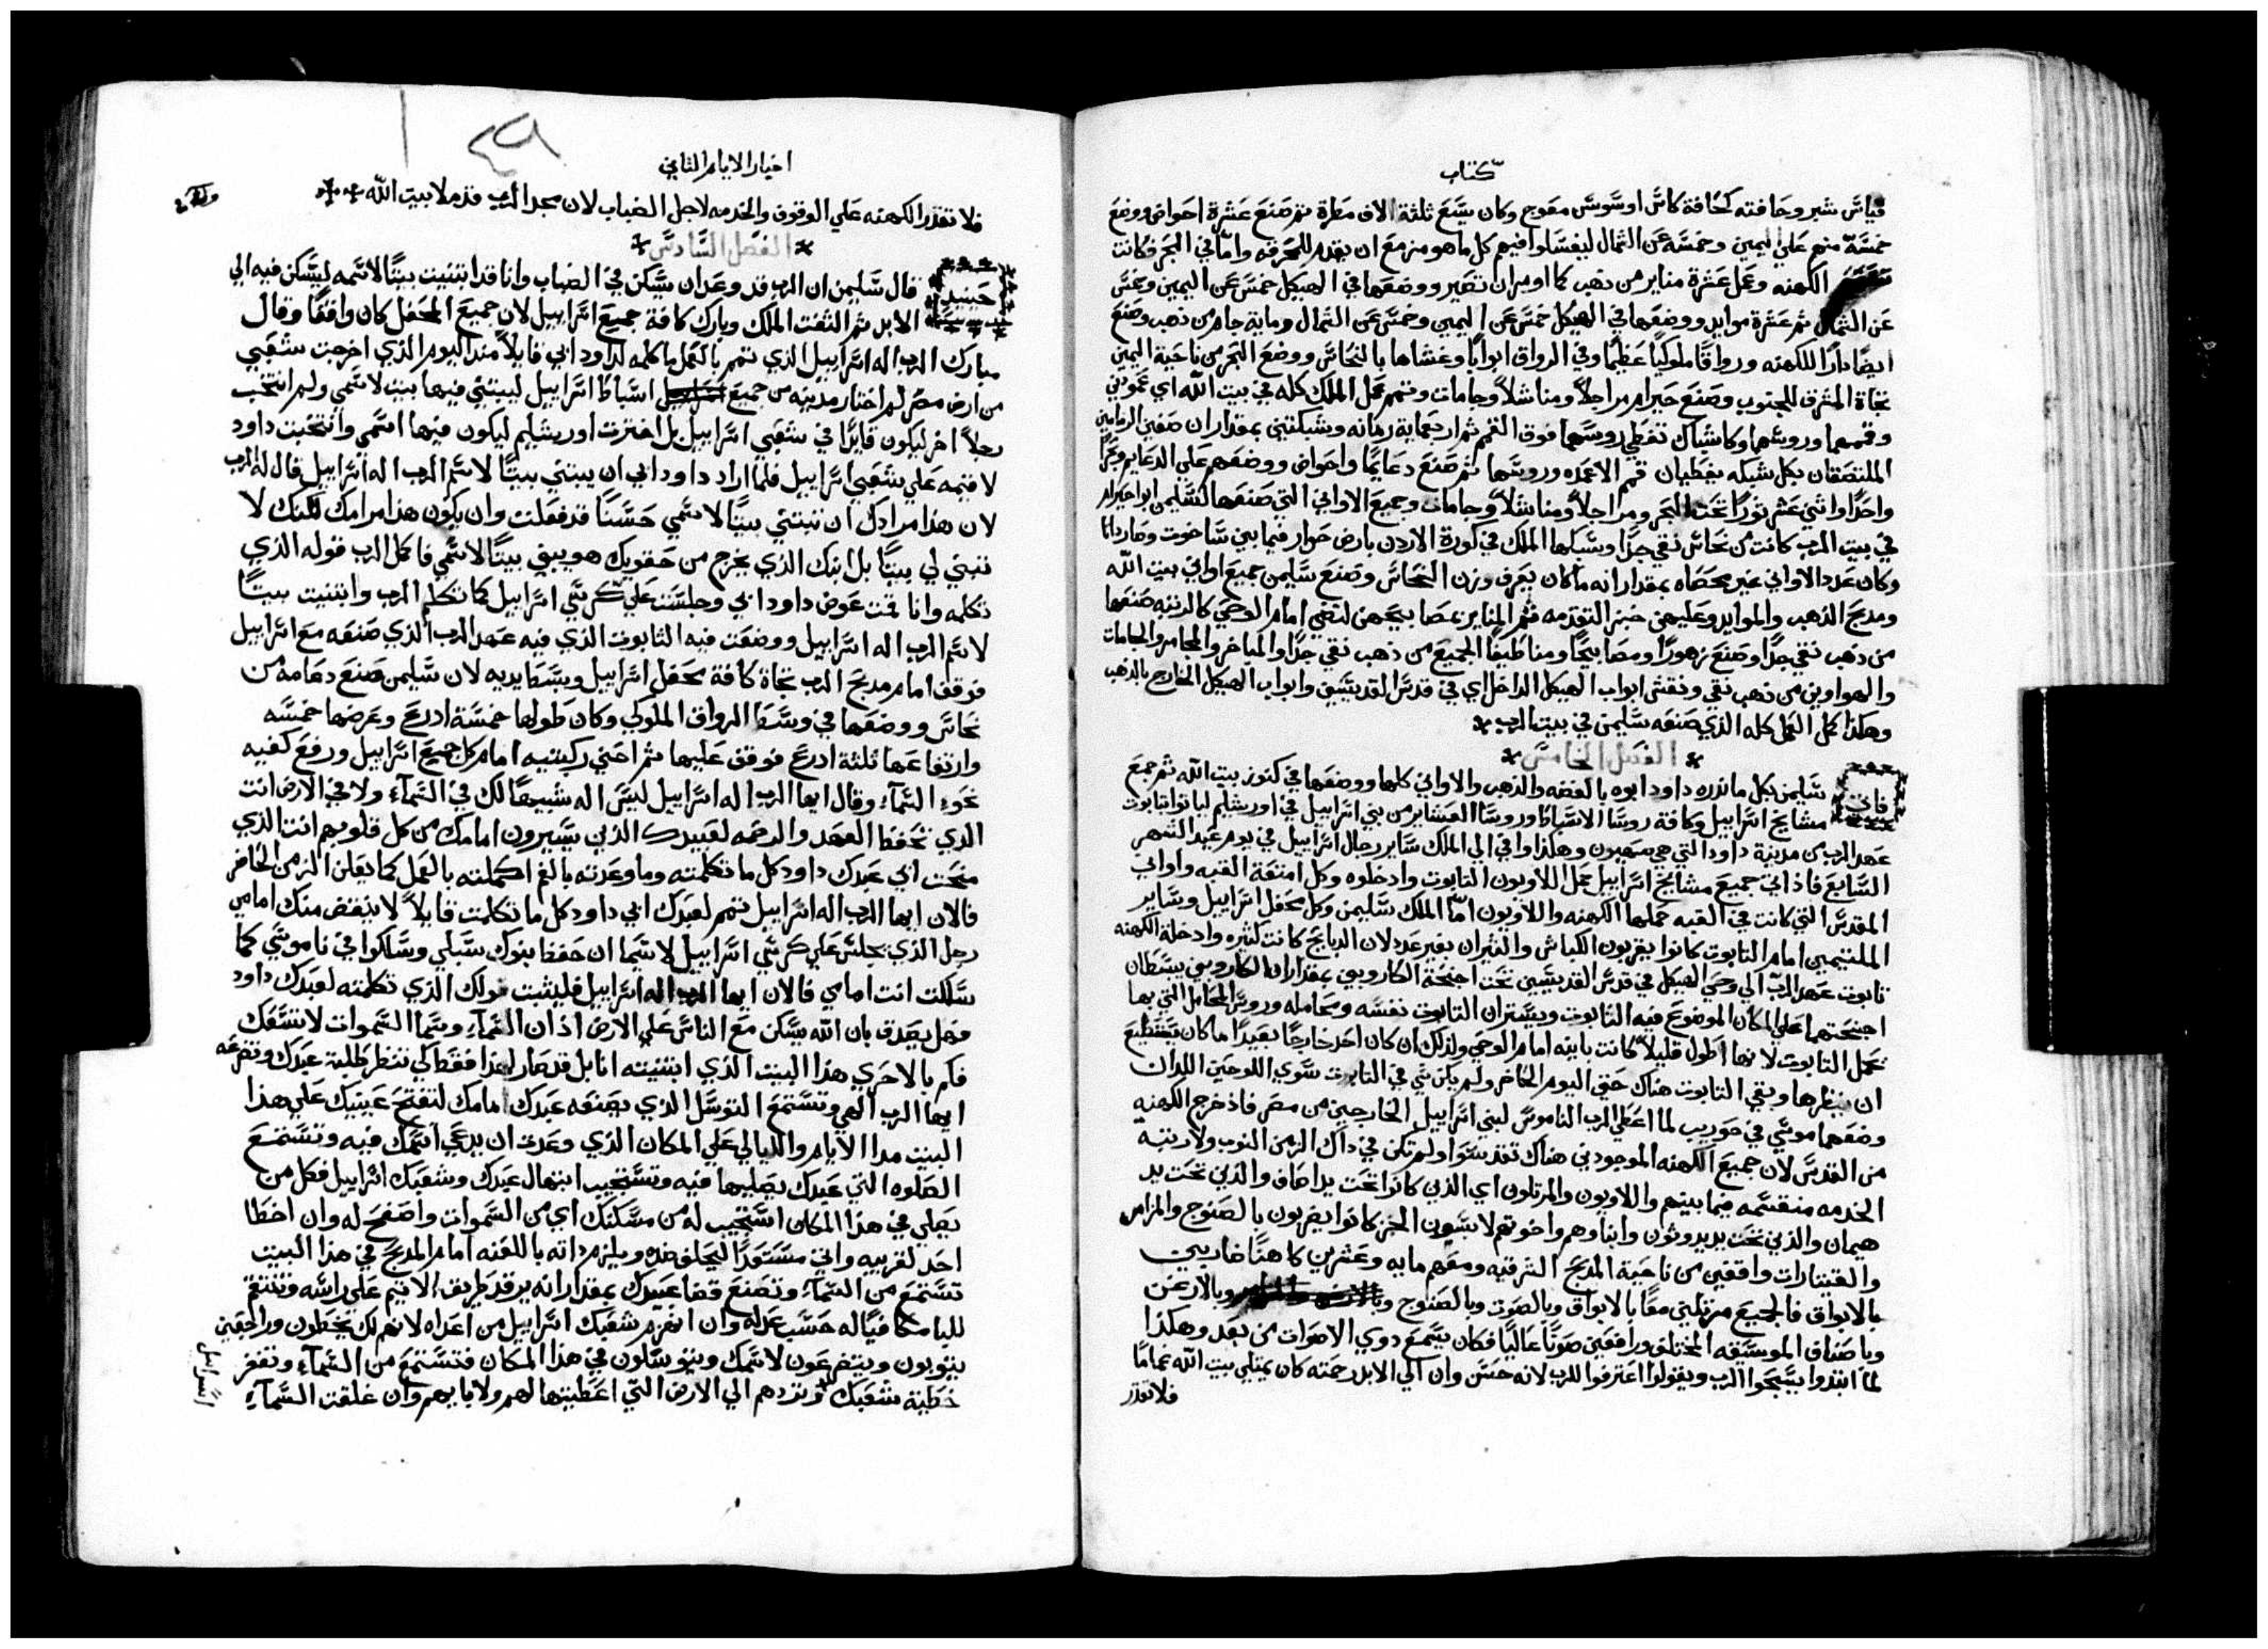 كتاب
قياس شبر وحافته كحافة كاس او سوسن معوج وكان يسع ثلثة الاف مطرة ثم صنع عشرة احواض ووضع
خمسة منهم علي اليمين وخمسة عن الشمال ليغسلوا فيهم كل ما هو مزمع ان يقدم للمحرقه واما في البحر فكانت
الكهنه وعمل عشرة مناير من ذهب كما اومر ان تصير ووضعها في الهيكل خمس عن اليمين وخمس
عن الشمال ثم عشرة موايد ووضعها في الهيكل خمس عن اليمين وخمس عن الشمال وماية جام من ذهب وصنع
ايضا دارا للكهنه ورواقا ملوكيا عظيما وفي الرواق ابوابا وغشاها بالنحاس ووضع البحر من ناحية اليمين
تجاة المشرق للجنوب وصنع حيرام مراجلا ومناشلا وجامات وتمم عمل الملك كله في بيت الله اي عمودين
وقممهما وروسهما وكاشباك تغطي روسهما فوق القمم ثم اربعماية رمانه وشبكتين بمقدار ان صفين الرمامين
الملتصقان بكل شبكه يغطيان قمم الاعمده وروسها ثم صنع دعايما واحواض ووضعهم علي الدعايم وبحرا
واحدا واثني عشر ثورا تحت البحر ومراجلا ومناشلا وجامات وجميع الاواني التي صنعها لسليمن ابوا حيرام
في بيت الرب كانت من نحاس نقي جدا وسبكها الملك في كورة الاردن بارض حوار فيما بين ساخوت وصاردانا
وكان عدد الاواني غير محصاه بمقدار انه ما كان يعرف وزن النحاس وصنع سليمن جميع اواني بيت الله
ومدبح الذهب والموايد وعليهن خبز التقدمه ثم المناير بمصابيحهن لتضي امام الوحي كالرتبه صنعها
من ذهب نقي جدا وصنع زهورا ومصابيحا ومناطيفا الجميع من ذهب نقي جدا والمباخر والمجامر والجامات
والهواوين من ذهب نقي ونقش ابواب الهيكل الداخل اي في قدس القديسين وابواب الهيكل الخارج بالذهب
وهكذا كمل العمل كله الذي صنعه سليمن في بيت الرب
الفصل الخامس
فاتي سليمن بكل ما نذره داود ابوه بالفضه والذهب والاواني كلها ووضعها في كنوز بيت الله ثم جمع
مشايخ اسراييل وكافة روسا الاسباط وروسا العشاير من بني اسراييل في اورشليم ليا توا بتابوت
عهد الرب من مدينة داود التي هي صهيون وهكذا وافي الي الملك ساير رجال اسراييل في يوم عيد الشهر
السابع فاذ اتي جميع مشايخ اسراييل حمل اللاويون التابوت وادخلوه وكل امتعة القبه واواني
المقدس التي كانت في القبه حملها الكهنه واللاويون اما الملك سليمن وكل محفل اسراييل وساير
الملتيمين امام التابوت كانوا يقربون الكباش والثيران بغير عدد لان الدبايح كانت كثيره وادخلة الكهنه
تابوت عهد الرب الي وحي الهيكل في قدس القديسين تحت اجنحة الكاروبين بمقدار ان الكاروبين يبسطان
اجنحتهما علي المكان الموضوع فيه التابوت ويستران التابوت نفسه ومحامله وروس المحامل التي بها
تحمل التابوت لانها اطول قليلا كانت باينه امام الوحي ولذلك ان كان احد خارجا بعيدا ما كان يستطيع
ان ينظرها وبقي التابوت هناك حتي اليوم الحاضر ولم يكن شي في التابوت سوي اللوحين اللدان
وضعهما موسي في حوريب لما اعطي الرب الناموس لبني اسراييل الخارجين من مصر فاذ خرج الكهنه
من القدس لان جميع الكهنه الموجودين هناك تقدسوا ولم تكن في ذاك الزمن النوب ولا رتبة
الخدمه منقسمه فيما بينهم واللاويون والمرتلون اي الذين كانوا تحت يد اصاف والذين تحت يد
هيمان والذين تحت يد يدوثون وابناوهم واخوتهم لابسون الخز كانوا يضربون بالصنوج والمزامر
والقيتارات واقفين من ناحية المدبح الشرقيه ومعهم مايه وعشرين كاهنا ضاربين
بالابواق فالجميع مرتلين معا بالابواق وبالصوت وبالصنوج وبالارغن
وباصناف الموسيقه المختلفه ورافعين صوتا عاليا فكان يسمع دوي الاصوات من بعد وهكذا
لما ابتدوا يسبحوا الرب ويقولوا اعترفوا للرب لانه حسن وان الي الابد رحمته كان يمتلي بيت الله غماما
فلا تقدر
اخبار الايام الثاني
٤٩
فلا تقدر الكهنه علي الوقوف والخدمه لاجل الضباب لان مجد الرب قد ملا بيت الله
الفصل السادس
حينيد قال سليمن ان الرب قد وعد ان يسكن في الضباب وانا قد ابتنيت بيتا لاسمه ليسكن فيه الي
الابد ثم التفت الملك وبارك كافة جميع اسراييل لان جميع المحفل كان واقفا وقال
مبارك الرب اله اسراييل الذي تمم بالعمل ما كلمه لداود ابي قايلا منذ اليوم الذي اخرجت شعبي
من ارض مصر لم اختار مدينه من جميع اسباط اسراييل ليبتني فيها بيت لاسمي ولم انتخب
رجلا اخر ليكون قايدا في شعبي اسراييل بل اخترت اورشليم ليكون فيها اسمي وانتخبت داود
لاقيمه علي شعبي اسراييل فلما اراد داود ابي ان يبتني بيتا لاسم الرب اله اسراييل قال له الرب
لان هذا مرادك ان تبتني بيتا لاسمي حسنا قد فعلت وان يكون هذا مرامك لكنك لا
تبني لي بيتا بل ابنك الذي يخرج من حقويك هو يبني بيتا لاسمي فاكمل الرب قوله الذي
تكلمه وانا قمت عوض داود ابي وجلست علي كرسي اسراييل كما تكلم الرب وابتنيت بيتا
لاسم الرب اله اسراييل ووضعت فيه التابوت الذي فيه عهد الرب الذي صنعه مع اسراييل
فوقف امام مدبح الرب تجاة كافة محفل اسراييل وبسط يديه لان سليمن صنع دعامه من
نحاس ووضعها في وسط الرواق الملوكي وكان طولها خمسة ادرع وعرضها خمسه
وارتفاعها ثلثة ادرع فوقف عليها ثم احني ركبتيه امام كل جميع اسراييل ورفع كفيه
نحو السماء وقال ايها الرب اله اسراييل ليس اله شبيها لك في السماء ولا في الارض انت
الذي تحفظ العهد والرحمه لعبيدك الذين يسيرون امامك من كل قلوبهم انت الذي
منحت ابي عبدك داود كل ما تكلمته وما وعدته بالفم اكملته بالعمل كما يعلن الزمن الحاضر
فالان ايها الرب اله اسراييل تمم لعبدك ابي داود كل ما تكلمت قايلا لا ينقض منك امامي
رجل الذي يجلس علي كرسي اسراييل لاسيما ان حفظا بنوك سبلي وسلكوا في ناموسي كما
سلكت انت امامي فالان ايها الرب اله اسراييل فليثبت قولك الذي تكلمته لعبدك داود
وهل يصدق بان الله يسكن مع الناس علي الارض اذ ان السماء وسما السموات لا تسعك
فكم بالاحري هذا البيت الذي ابتنيته انا بل قد صار لهذا فقط لكي تنظر طلبة عبدك وتضرعه
ايها الرب الهي وتستمع التوسل الذي يصنعه عبدك امامك لتفتح عينيك علي هذا
البيت مدا الايام والليالي علي المكان الذي وعدت ان يدعي اسمك فيه وتستمع
الصلوه التي عبدك يصليها فيه وتستجيب ابتهال عبدك وشعبك اسراييل فكل من
يصلي في هذا المكان استجيب له من مسكنك اي من السموات واصفح له وان اخطا
احد لقريبه واتي مستعدا ليحلف ضده ويلزم داته باللعنه امام المدبح في هذا البيت
تستمع من السماء وتصنع قضا عبيدك بمقدار انه يرتد طريق الاتيم علي راسه وتنتقم
للبار مكافيا له حسب عدله وان انهزم شعبك اسراييل من اعداه لانهم لك يخطون وراجعين
يتوبون ويتضرعون لاسمك ويتوسلون في هذا المكان فتستمع من السماء وتغفر
خطية شعبك وتردهم الي الارض التي اعطيتها لهم ولابايهم وان غلقت السماء
اسراييل